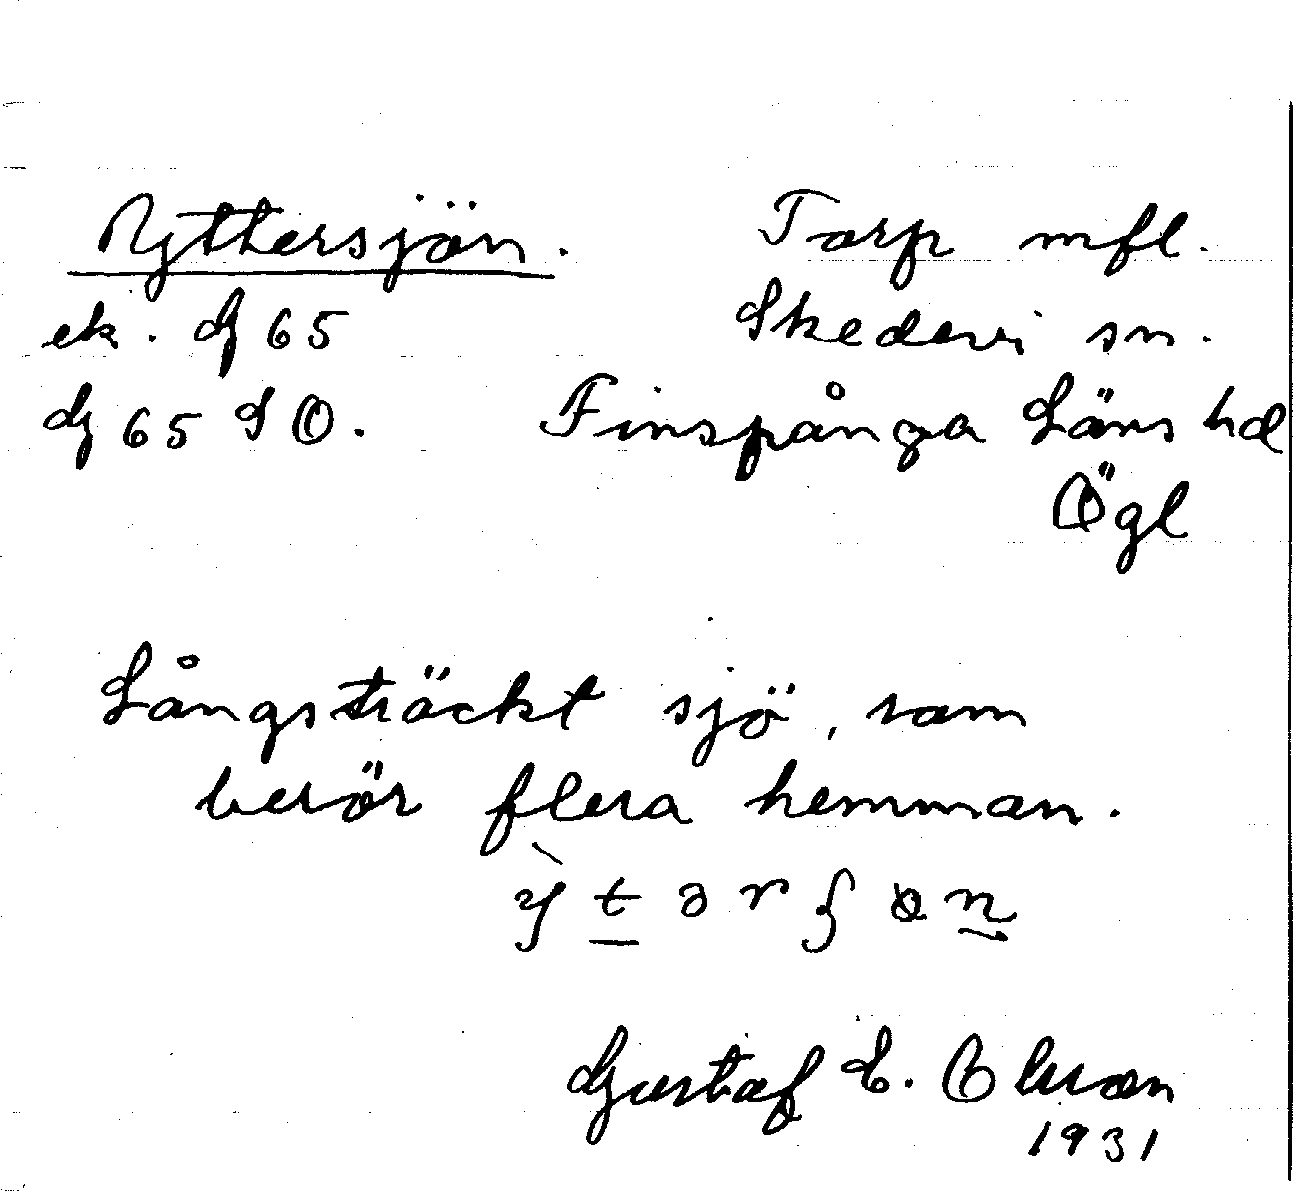 Yttersjön.
Torp mfl.
ek. dj 65
Skedevi sn.
dj 65 SO.
Finspånga Läns hd
Ögl
Långsträckt sjö, som
berör flera hemman.
Gustaf E. Olsson
1931